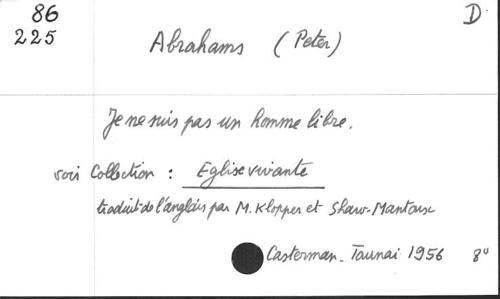 86
225
D
Abrahams (Peter)
Je ne suis pas un homme libre.
voir Collection : Eglise vivante
traduit de l'anglais par M. Klopper et Shaw-Mantoux
Casterman - Tournai 1956 8°